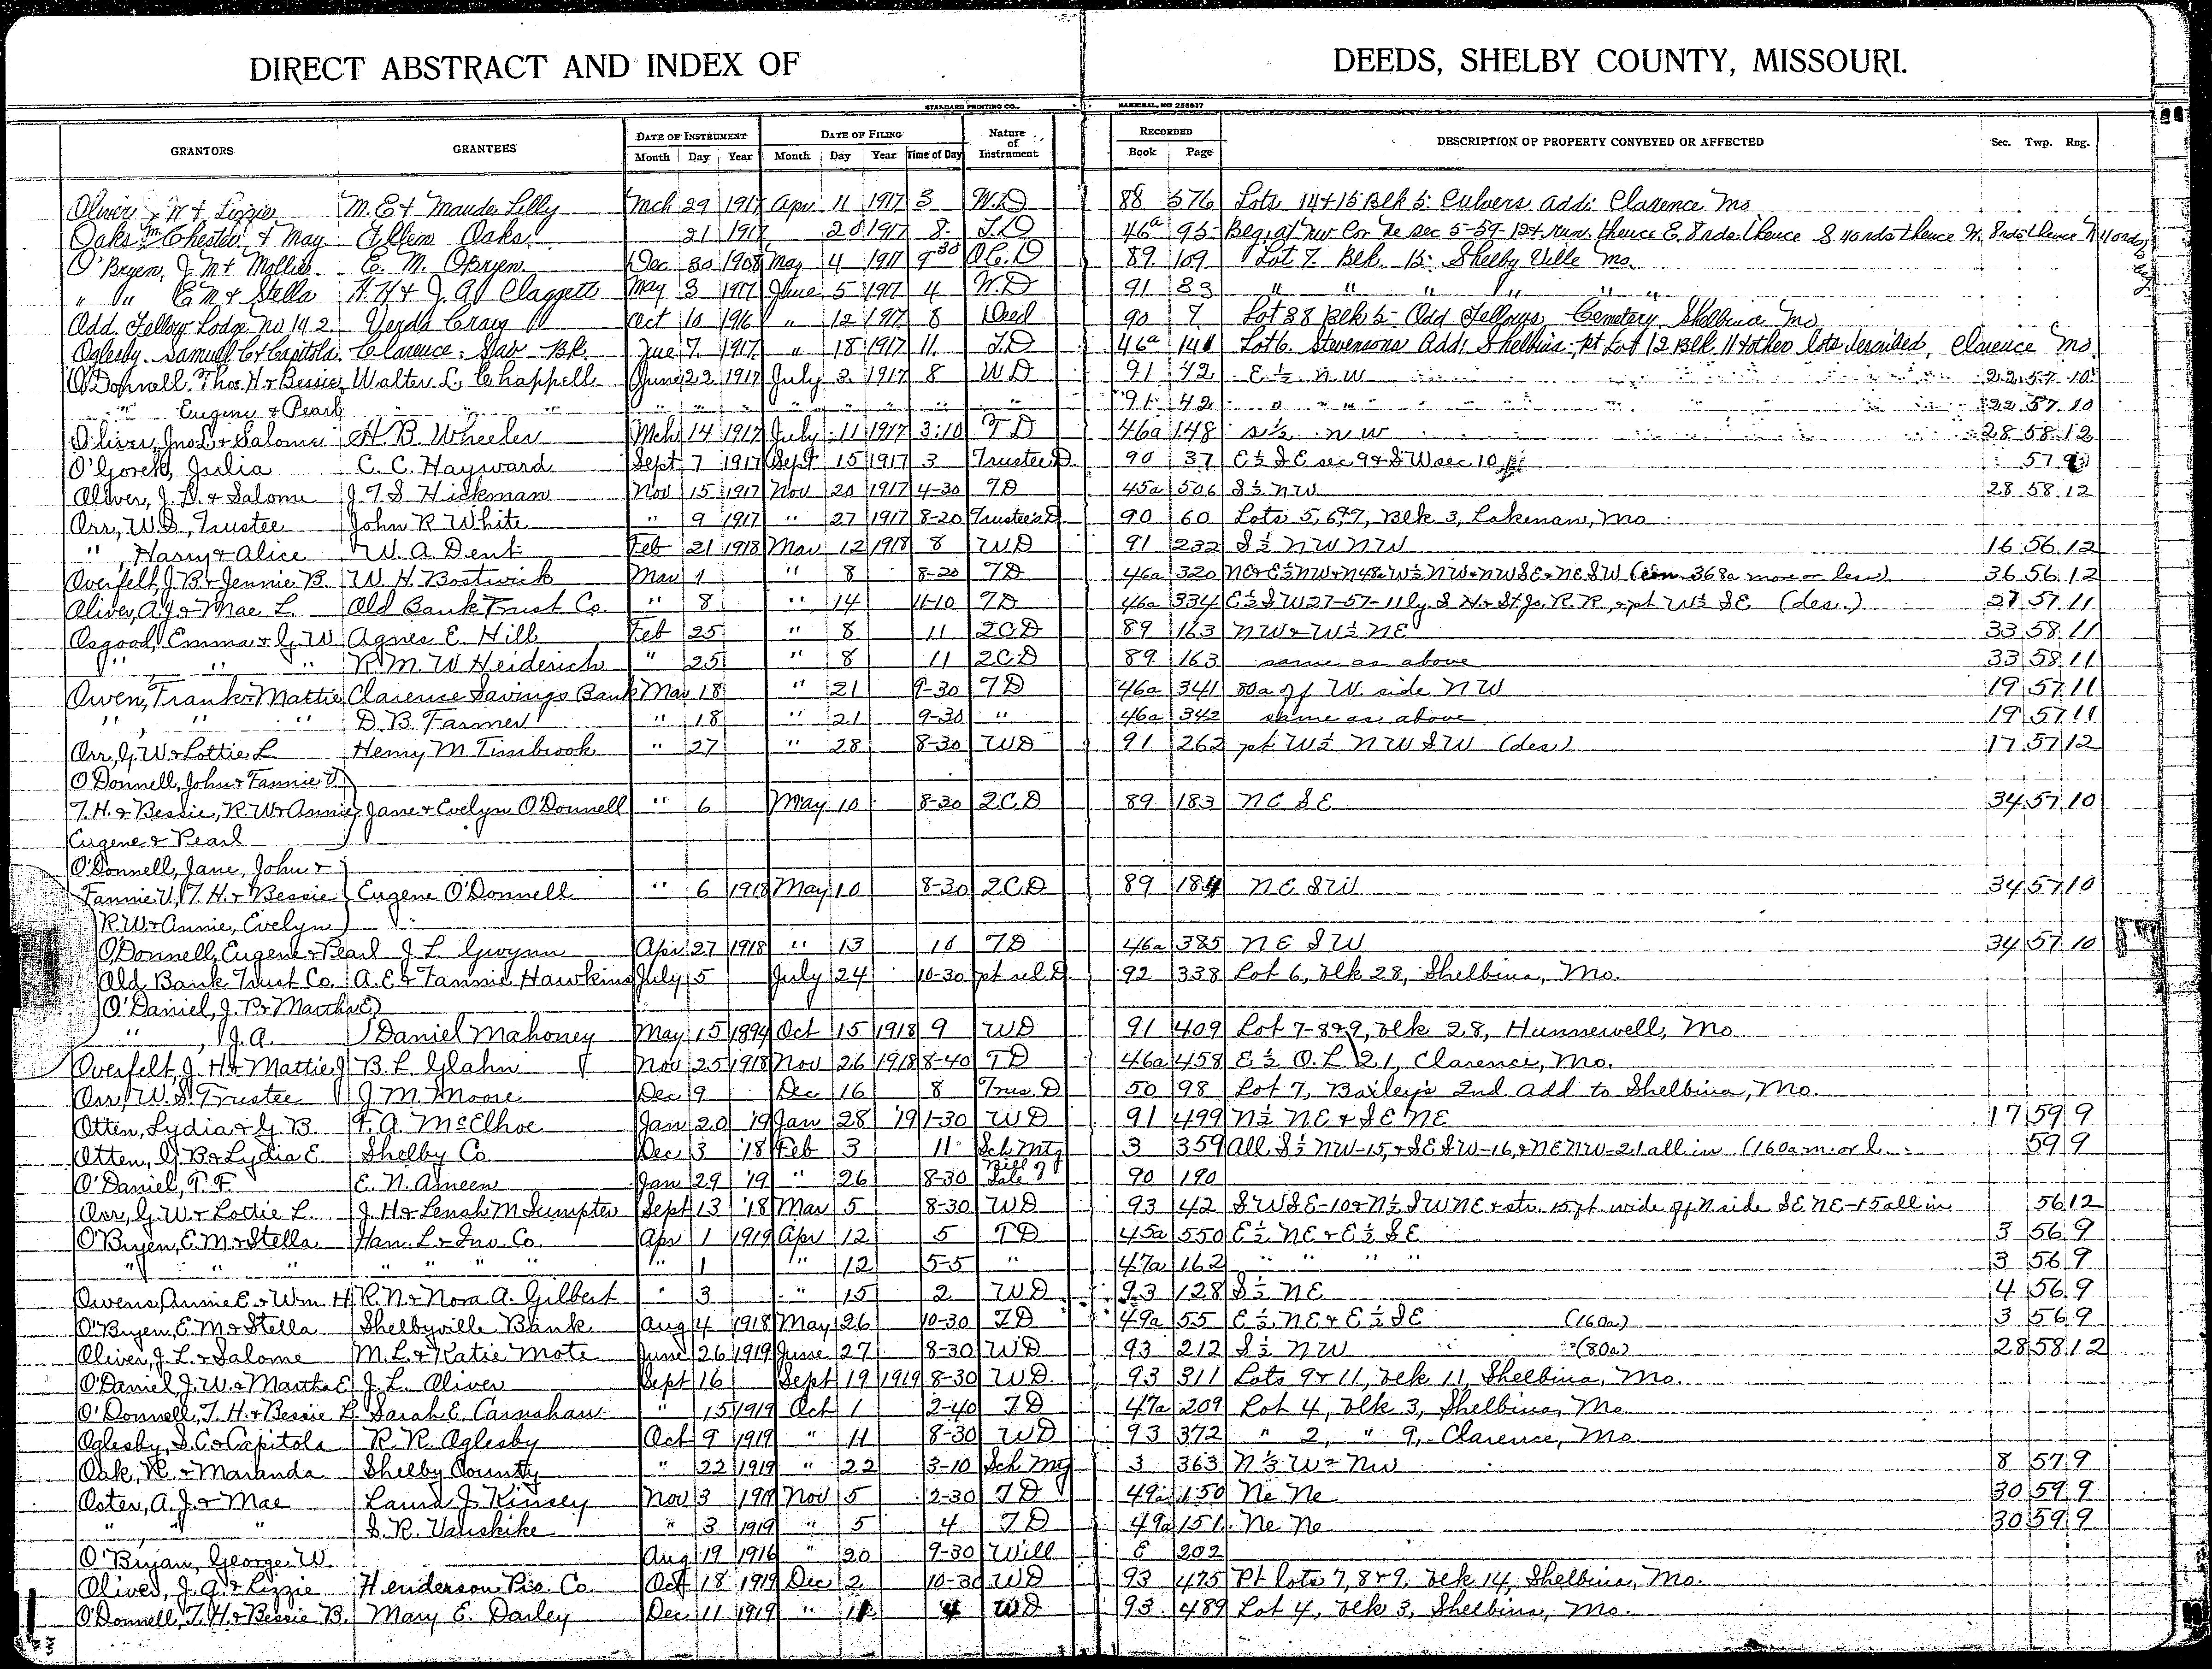 DIRECT ABSTRACT AND INDEX OF DEEDS, SHELBY COUNTY, MISSOURI.
STANDARD PRINTING CO., HANNIBAL, MO 256637
GRANTORS GRANTEES DATE OF INSTRUMENT DATE OF FILING Nature of Instrument RECORDED DESCRIPTION OF PROPERTY CONVEYED OR AFFECTED Sec. Twp. Rng.
Month Day Year Month Day Year Time of Day Book Page
Oliver J W & Lizzie M. E & Maude Lilly Mch 29 1917 Apr 11 1917 3 W.D 88 576 Lots 14 & 15 Blk 5 Culvers Add: Clarence Mo
Oaks Chester & May Ellen Oaks 21 1917 20 1917 8 T.D 46a 95 Beg. at NW Cor Ne sec 5-59-12 & run thence E. 8 rds thence S 40 rds thence W. 8 rds thence N 40 rds
O'Bryen, J. M & Mollie E. M. OBryen Dec 30 1908 May 4 1917 9 30 Q.C.D 89 109 Lot 7 Blk 15 Shelby Ville Mo.
" " E M & Stella H. H & J. A Claggett May 3 1917 June 5 1917 4 W.D 91 83 " " " " " "
Odd Fellow Lodge No 192 Verda Craig Oct 10 1916 " 12 1917 8 Deed 90 7 Lot 38 Blk 5 Odd Fellows Cemetery Shelbina Mo
Oglesby Samuel C & Capitola Clarence Sav Bk. June 7 1917 " 18 1917 11 T.D 46a 141 Lot 6 Stevensons Add: Shelbina pt Lot 12 Blk 11 & other lots described, Clarence Mo.
O'Donnall. Thos. H. & Bessie Walter L. Chappell June 22 1917 July 3 1917 8 WD 91 42 E ½ N.W 22 57 10
" Eugene & Pearl " " " " " " " " " " 91 42 " " " 22 57 10
Oliver, Jno L & Salome H. B. Wheeler Mch 14 1917 July 11 1917 3:10 TD 46a 148 S½ NW 28 58 12
O'Goreh, Julia C. C. Hayward Sept 7 1917 Sept 15 1917 3 Trustee D 90 37 E ½ S E sec 9 & S W sec 10 57 9
Oliver, J. L. & Salome J. T. S. Hickman Nov 15 1917 Nov 20 1917 4-30 TD 45a 506 S ½ NW 28 58 12
Orr, W. S. Trustee John R White " 9 1917 " 27 1917 8-20 Trustee's D. 90 60 Lots 5, 6 & 7, Blk 3, Lakenan, Mo
", Harry & Alice W. A Dent Feb 21 1918 Mar 12 1918 8 WD 91 232 S ½ NW NW 16 56 12
Overfelt, J B & Jennie B. W. H. Bostwick Mar 1 " 8 8-20 TD 46a 320 NE & E½ NW & N48a W½ NW & NW SE & NE SW (con. 368a more or less) 36 56 12
Oliver, A. J. & Mae L. Old Bank Trust Co. " 8 " 14 11-10 TD 46a 334 E½ S W 27-57-11 ly. S H. & St. Jo. R.R. & pt W½ SE (des.) 27 57 11
Osgood, Emma & G. W Agnes E. Hill Feb 25 " 8 11 2CD 89 163 NW & W½ NE 33 58 11
" " " R. M. W Heiderich " 25 " 8 11 2CD 89 163 same as above 33 58 11
Owen, Frank & Mattie Clarence Savings Bank Mar 18 " 21 9-30 TD 46a 341 80a off W. side NW 19 57 11
" " " D. B. Farmer " 18 " 21 9-30 " 46a 342 same as above 19 57 11
Orr, G. W & Lottie L Henry M Timbrook " 27 " 28 8-30 WD 91 262 pt W½ NW SW (des.) 17 57 12
O'Donnell, John & Fannie V.
T. H. & Bessie, R. W & Annie Jane & Evelyn O'Donnell " 6 May 10 8-30 2CD 89 183 NE SE 34 57 10
Eugene & Pearl
O'Donnell, Jane, John &
Fannie V, T. H. & Bessie Eugene O'Donnell " 6 1918 May 10 8-30 2CD 89 184 NE SW 34 57 10
R. W & Annie, Evelyn
O'Donnell, Eugene & Pearl J. L. Gwynn Apr 27 1918 " 13 10 TD 46a 385 NE SW 34 57 10
Old Bank Trust Co. A. E & Fannie Hawkins July 5 July 24 10-30 pt rel D. 92 338 Lot 6, blk 28, Shelbina, Mo.
O'Daniel, J. P & Martha E
", J. A. Daniel Mahoney May 15 1894 Oct 15 1918 9 WD 91 409 Lot 7-8&9, blk 28, Hunnewell, Mo
Overfelt, J. H & Mattie J B. L Glahn Nov 25 1918 Nov 26 1918 8-40 TD 46a 458 E½ O. L 21, Clarence, Mo.
Orr, W. S. Trustee J. M Moore Dec 9 Dec 16 8 Trus. D 50 98 Lot 7, Bailey's 2nd Add to Shelbina, Mo.
Otten, Lydia & G. B. F. A. McElhoe Jan 20 19 Jan 28 '19 1-30 WD 91 499 N½ NE & SE NE 17 59 9
Otten, G. B & Lydia E Shelby Co Dec 3 '18 Feb 3 11 Sch Mtg 3 359 All S½ NW-15, & SE SW-16, & NE NW-21 all in (160a m. or l. 59 9
O'Daniel, T. F. E. N. Ameen Jan 29 '19 " 26 8-30 Bill of Sale 90 190
Orr, G. W. & Lottie L. J. H & Lenah M Sumpter Sept 13 '18 Mar 5 8-30 WD 93 42 S W S E-10 & N½ SW NE & str. 15 ft wide off N side SE NE-15 all in 56 12
O'Bryen, E. M & Stella Han. L & Inv. Co. Apr 1 1919 Apr 12 5 TD 45a 550 E½ NE & E½ SE 3 56 9
" " " " " " " " 1 " 12 5-5 " 47a 162 " " " " 3 56 9
Owens, Annie E & Wm. H R. N & Nora A. Gilbert " 3 " 15 2 WD 93 128 S½ NE 4 56 9
O'Bryen, E. M & Stella Shelbyville Bank Aug 4 1918 May 26 10-30 TD 49a 55 E½ NE & E½ SE (160a) 3 56 9
Oliver, J. L. & Salome M. L. & Katie Mote June 26 1919 June 27 8-30 WD 93 212 S½ NW (80a) 28 58 12
O'Daniel J. W. & Martha E J. L. Oliver Sept 16 Sept 19 1919 8-30 WD. 93 311 Lots 9 & 11, blk 11, Shelbina, Mo.
O'Donnell, T. H. & Bessie B. Sarah E. Carnahan " 15 1919 Oct 1 2-40 TD 47a 209 Lot 4, blk 3, Shelbina, Mo
Oglesby, S. C & Capitola R. R. Oglesby Oct 9 1919 " 11 8-30 WD 93 372 " 2, " 9, Clarence, Mo.
Oak, R. & Maranda Shelby County " 22 1919 " 22 3-10 Sch Mtg 3 363 N½ W½ NW 8 57 9
Oster, A. J. & Mae Laura J. Kinsey Nov 3 1919 Nov 5 2-30 TD 49a 150 Ne Ne 30 59 9
" " " S. R. Vanskike " 3 1919 " 5 4 TD 49a 151 Ne Ne 30 59 9
O'Bryan, George W. Aug 19 1916 " 20 9-30 Will E 202
Oliver, J. G. & Lizzie Henderson Pro. Co. Oct 18 1919 Dec 2 10-30 WD 93 475 Pt lots 7, 8 & 9, blk 14, Shelbina, Mo.
O'Donnell, T. H. & Bessie B. Mary E. Darley Dec 11 1919 " 11 4 WD 93 489 Lot 4, blk 3, Shelbina, Mo.